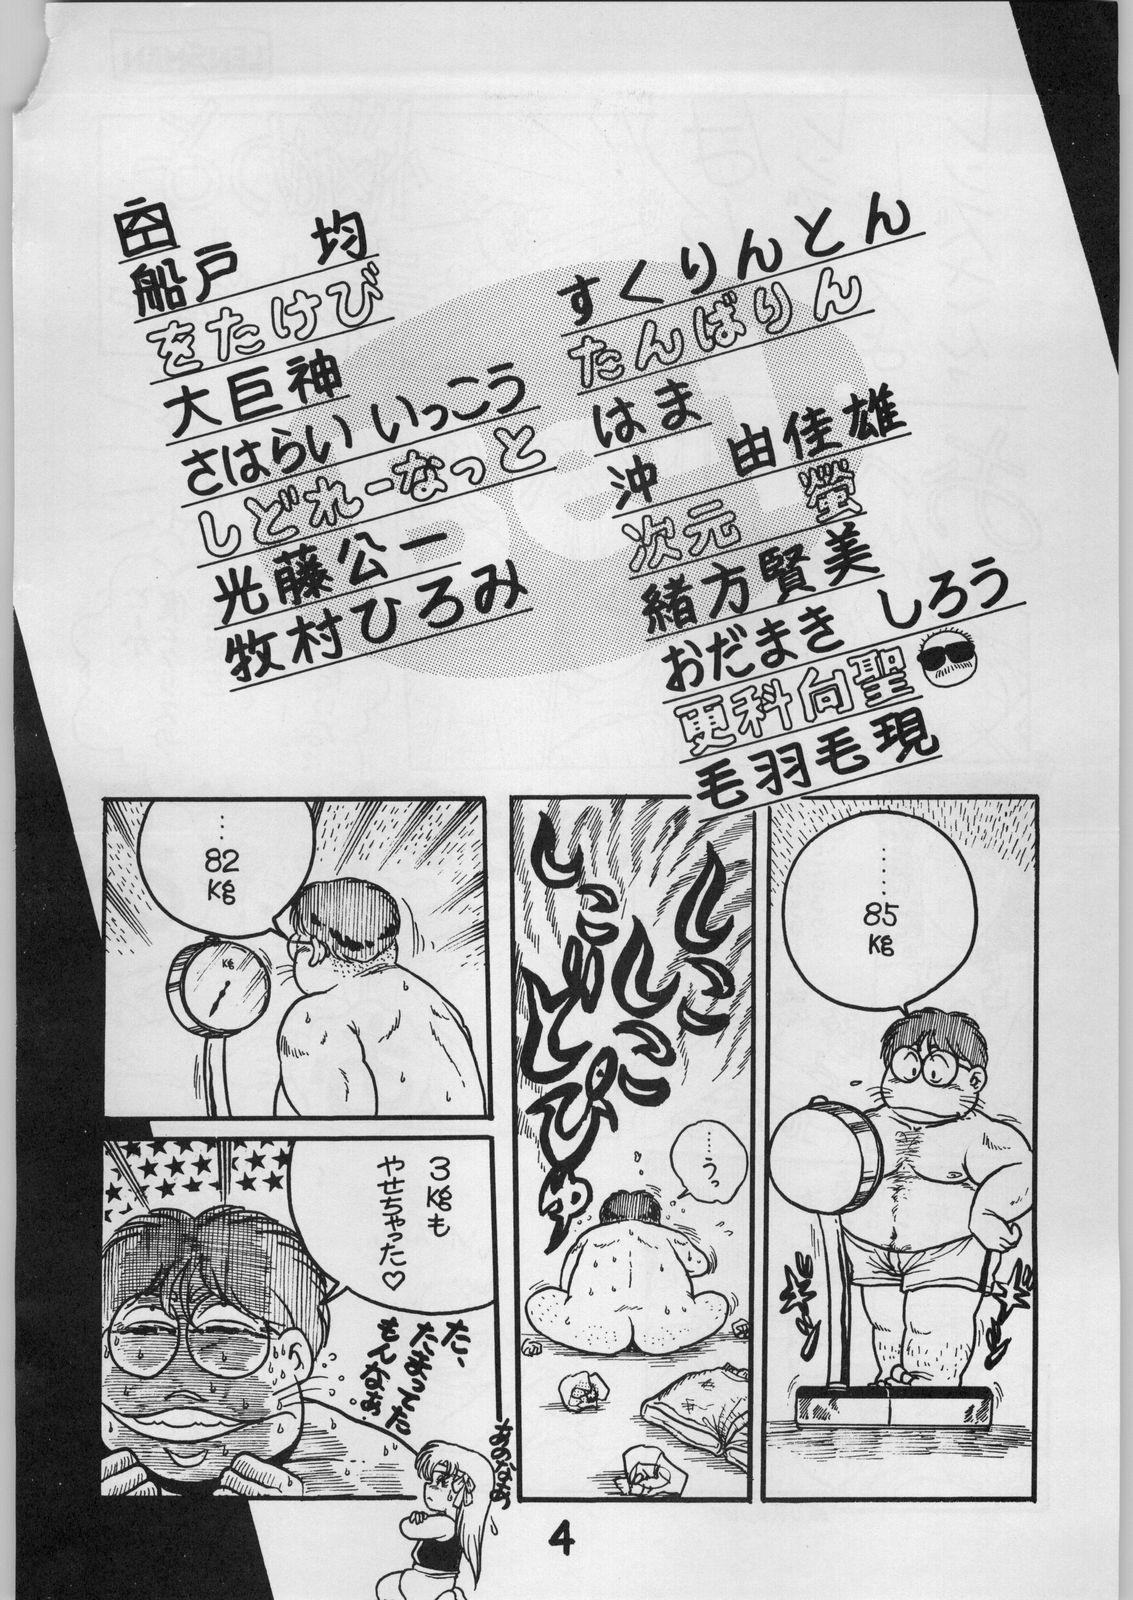 船戸 均
をたけび
大巨神
さはらい いっこう
しどれーなっと
光藤公一
牧村ひろみ
すくりんとん
たんばりん
はま
沖 由佳雄
次元 蛍
緒方賢美
おだまき しろう
更科向聖
毛羽毛現
……
85
kg
しこしこ
しこしこ
……うっ
…
82
kg
kg
3kgも
やせちゃった♡
た、
たまってた
もんなぁ
あのなぁ
4